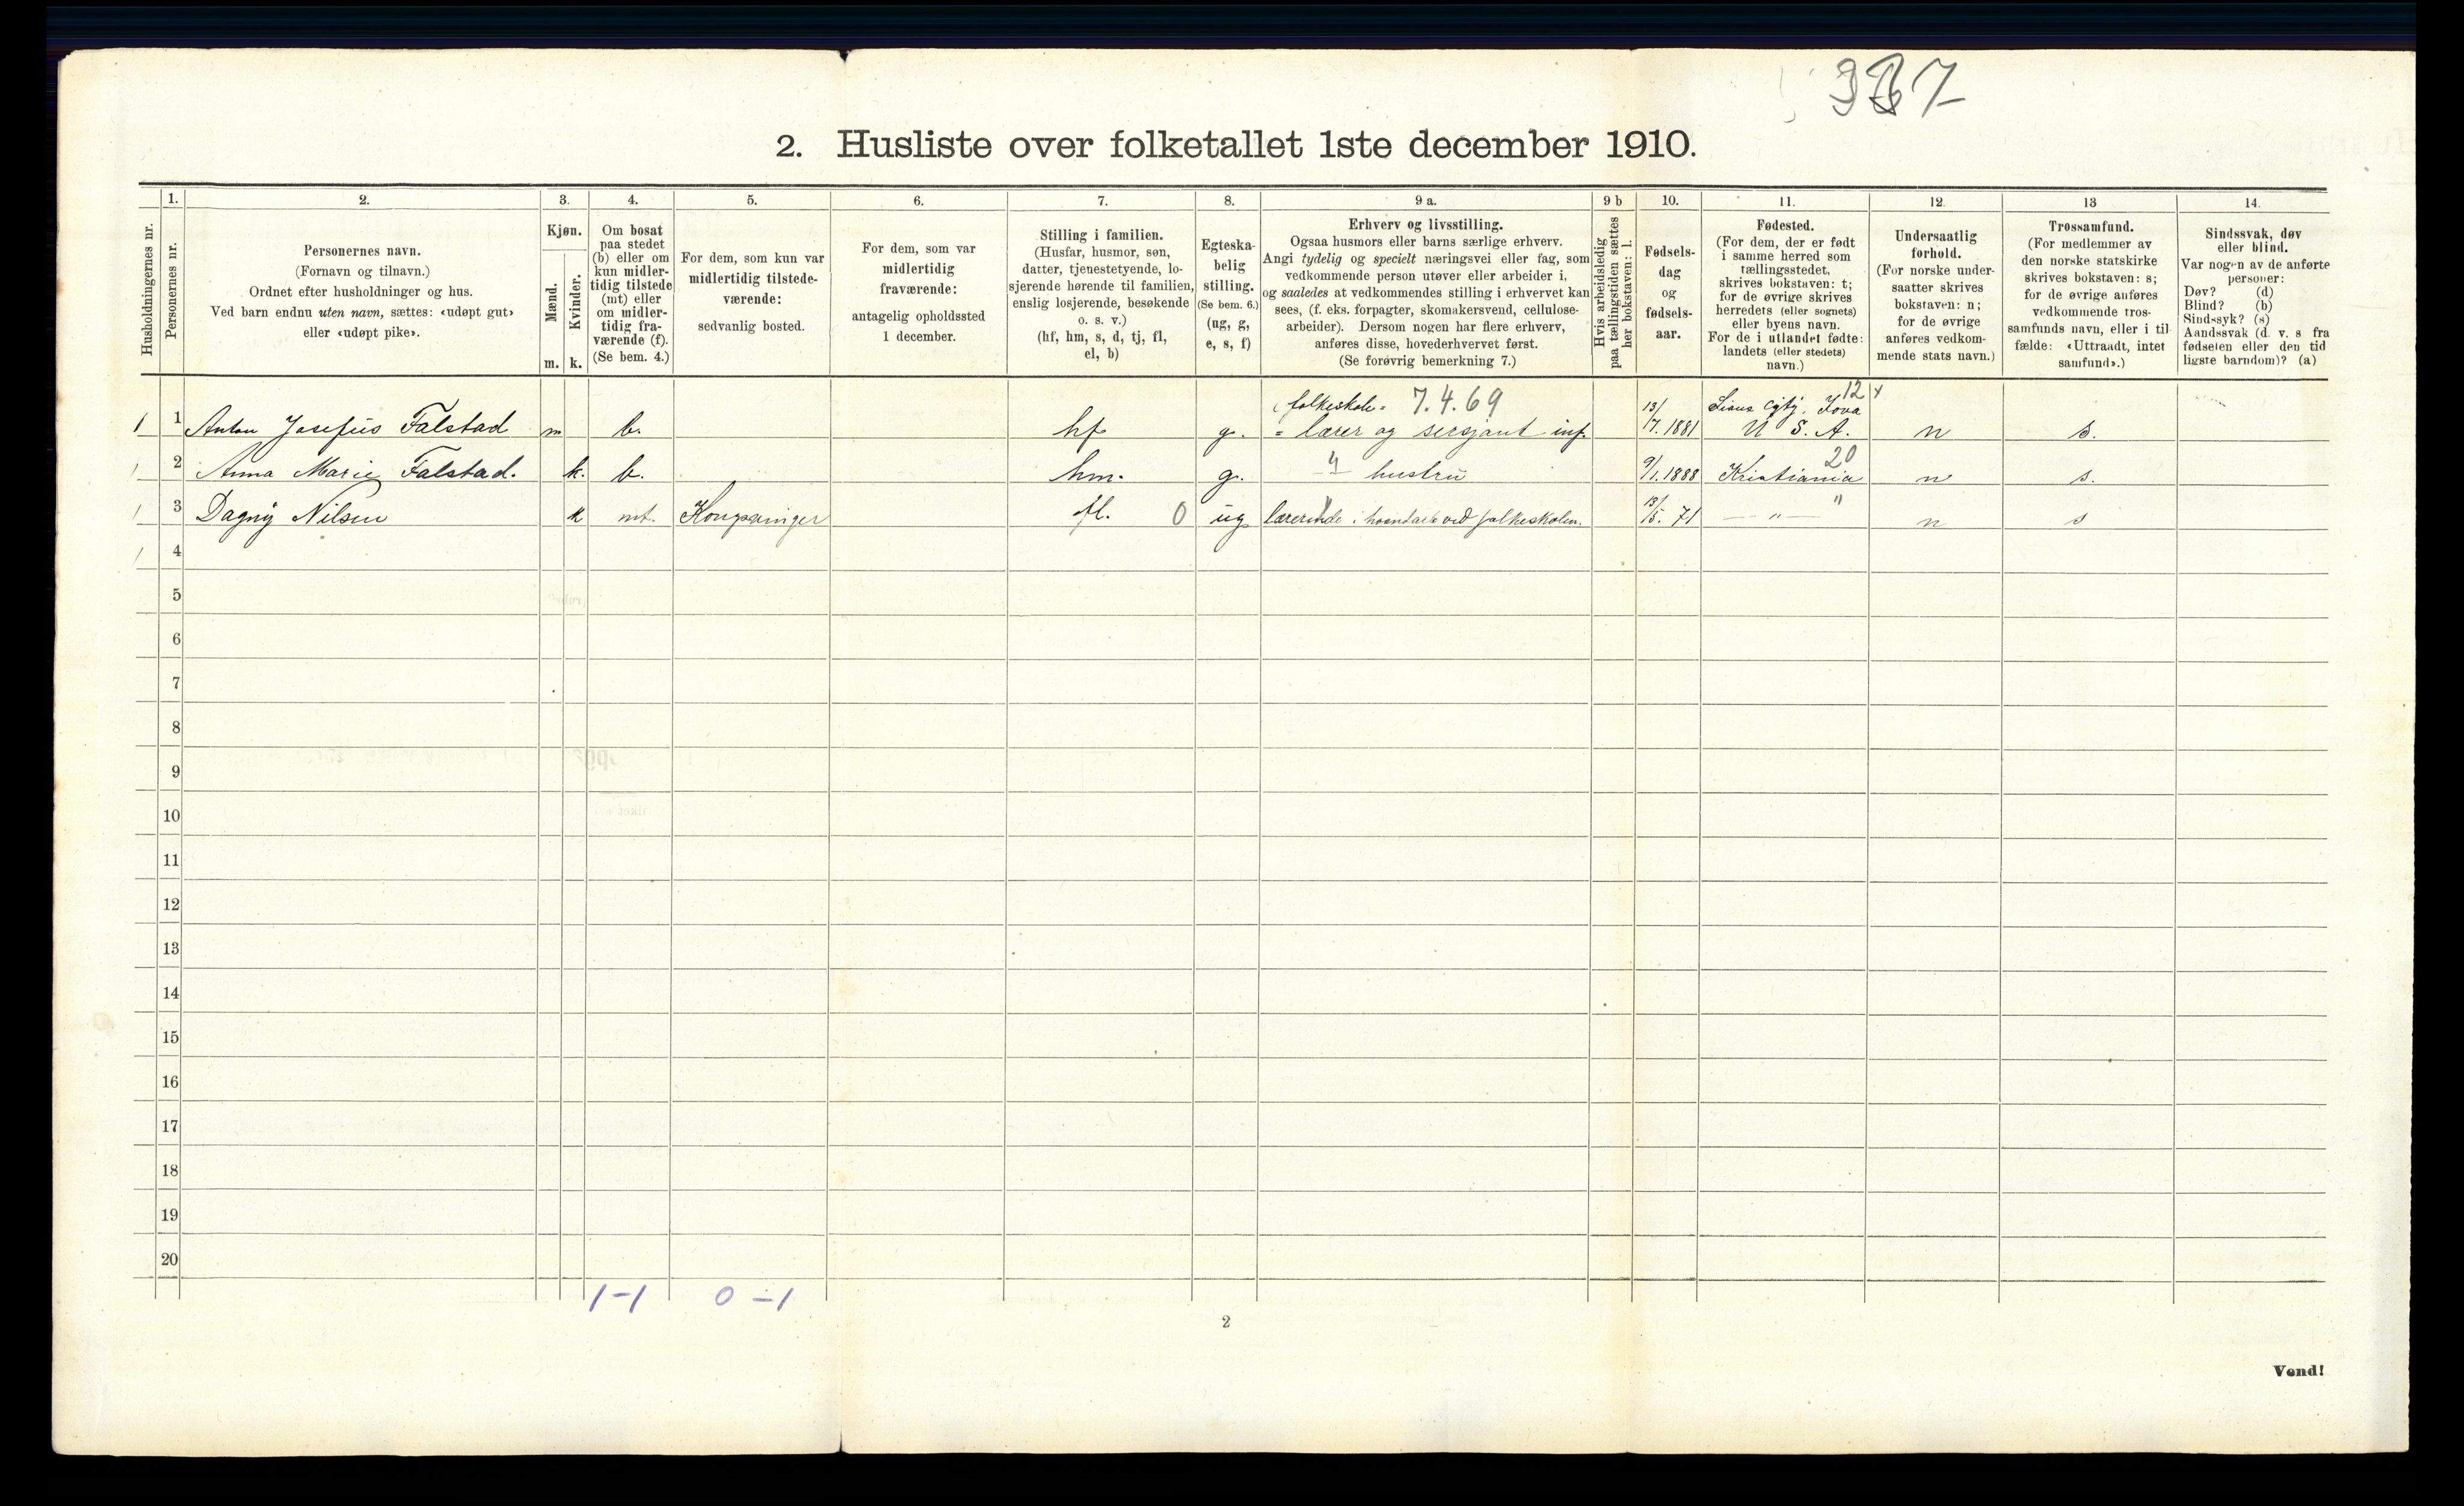 337
2. Husliste over folketallet 1ste december 1910.
Husholdningernes nr.
1.
Personernes nr.
2.
Personernes navn.
(Fornavn og tilnavn.)
Ordnet efter husholdninger og hus.
Ved barn endnu uten navn, sættes: «udøpt gut»
eller «udøpt pike».
3.
Kjøn.
Mænd.
Kvinder.
m. k.
4.
Om bosat
paa stedet
(b) eller om
kun midler-
tidig tilstede
(mt) eller
om midler-
tidig fra-
værende (f).
(Se bem. 4.)
5.
For dem, som kun var
midlertidig tilstede-
værende:
sedvanlig bosted.
6.
For dem, som var
midlertidig
fraværende:
antagelig opholdssted
1 december.
7.
Stilling i familien.
(Husfar, husmor, søn,
datter, tjenestetyende, lo-
sjerende hørende til familien,
enslig losjerende, besøkende
o. s. v.)
(hf, hm, s, d, tj, fl,
el, b)
8.
Egteska-
belig
stilling.
(Se bem. 6.)
(ug, g,
e, s, f)
9 a.
Erhverv og livsstilling.
Ogsaa husmors eller barns særlige erhverv.
Angi tydelig og specielt næringsvei eller fag, som
vedkommende person utøver eller arbeider i,
og saaledes at vedkommendes stilling i erhvervet kan
sees, (f. eks. forpagter, skomakersvend, cellulose-
arbeider). Dersom nogen har flere erhverv,
anføres disse, hovederhvervet først.
(Se forøvrig bemerkning 7.)
9 b
Hvis arbeidsledig
paa tællingstiden sættes
her bokstaven: l.
10.
Fødsels-
dag
og
fødsels-
aar.
11.
Fødested.
(For dem, der er født
i samme herred som
tællingsstedet,
skrives bokstaven: t;
for de øvrige skrives
herredets (eller sognets)
eller byens navn.
For de i utlandet fødte:
landets (eller stedets)
navn.)
12.
Undersaatlig
forhold.
(For norske under-
saatter skrives
bokstaven: n;
for de øvrige
anføres vedkom-
mende stats navn.)
13
Trossamfund.
(For medlemmer av
den norske statskirke
skrives bokstaven: s;
for de øvrige anføres
vedkommende tros-
samfunds navn, eller i til
fælde: «Uttraadt, intet
samfund».)
14.
Sindssvak, døv
eller blind.
Var nogen av de anførte
personer:
Døv? (d)
Blind? (b)
Sindssyk? (s)
Aandssvak (d. v. s fra
fødselen eller den tid
ligste barndom)? (a)
folkeskole= 7.4.69 12 x
1 1 Anton Josefus Falstad m b. hf g. = lærer og sersjant inf. 13/7.1881 Sioux City, Iova U S. A. n s.
2 Anna Marie Falstad. k. b. hm. g. " hustru 9/1.1888 Kristiania 20 n s.
3 Dagny Nilsen k mt. Kongsvinger fl. 0 ug lærerinde i haandarb ved folkeskolen. 13/5. 71 — " — " n s
4
5
6
7
8
9
10
11
12
13
14
15
16
17
18
19
20
1-1 0-1
2
Vend!